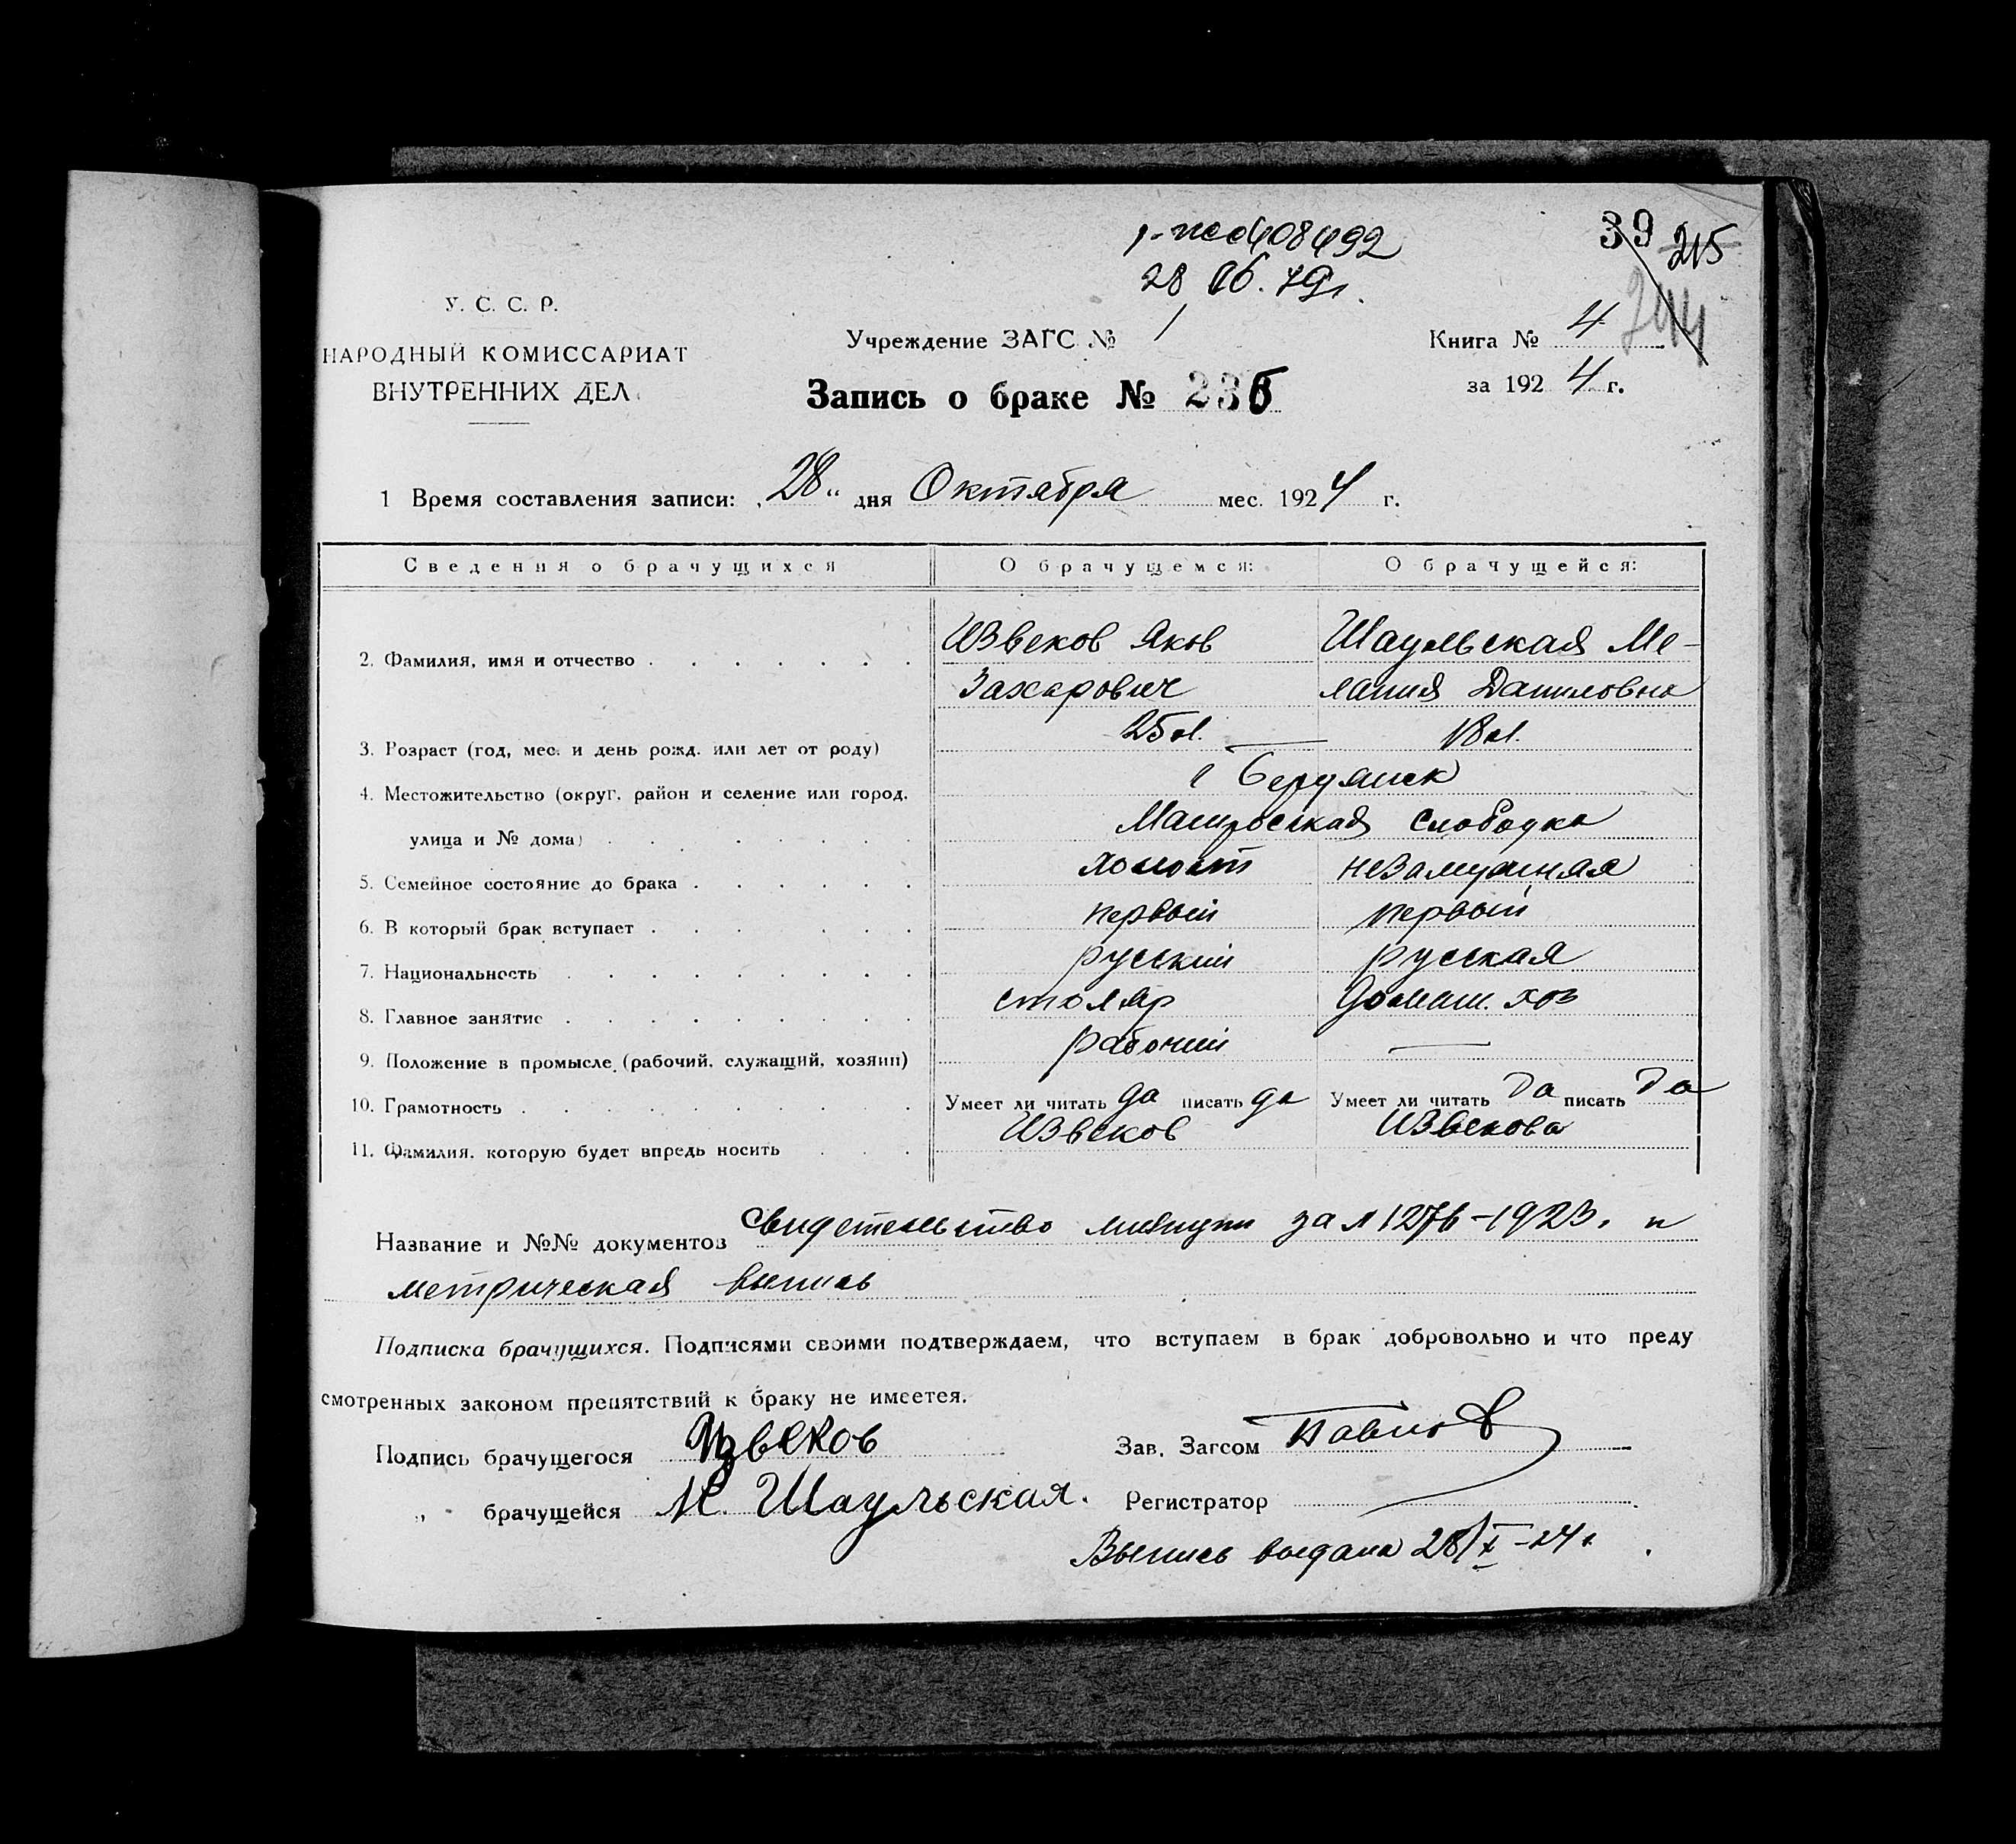 39 215
28 06. 79г.
У. С. С. Р.
НАРОДНЫЙ КОМИССАРИАТ
ВНУТРЕННИХ ДЕЛ
Учреждение ЗАГС № 1
Книга № 4
за 1924 г.
Запись о браке № 236
1 Время составления записи: „28" дня Октября мес. 1924 г.
Сведения о брачущихся О брачущемся: О брачущейся:
2. Фамилия, имя и отчество Извеков Яков Шаульская Ме-
Захарович лания Даниловна
3. Розраст (год, мес. и день рожд. или лет от роду) 25 л. — 18 л.
4. Местожительство (округ, район и селение или город, г Бердянск
улица и № дома) Матросская Слободка
5. Семейное состояние до брака холост незамужняя
6. В который брак вступает первый первый
7. Национальность русский русская
8. Главное занятие столяр домаш. хоз
9. Положение в промысле (рабочий, служащий, хозяин) рабочий —
10. Грамотность Умеет ли читать да писать да Умеет ли читать да писать да
11. Фамилия, которую будет впредь носить Извеков Извекова
Название и №№ документов Свидетельство за 1923. и
метрическая выпись
Подписка брачущихся. Подписями своими подтверждаем, что вступаем в брак добровольно и что преду
смотренных законом препятствий к браку не имеется.
Подпись брачущегося Извеков Зав. Загсом Павлов
„ брачущейся М. Шаульская. Регистратор
Выпись выдана 28/X-24 г.